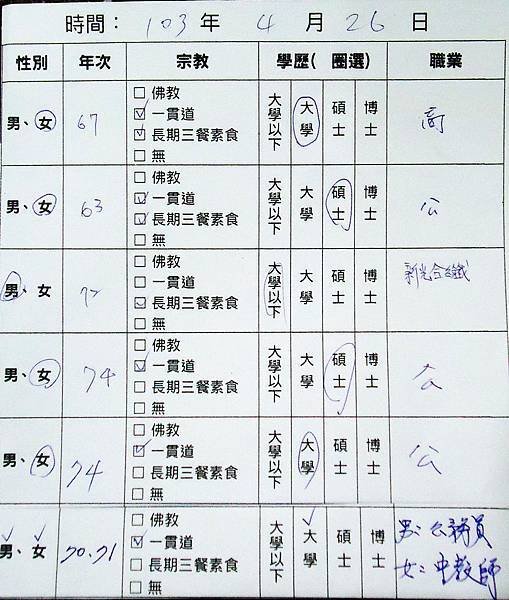 時間： 103 年 4 月 26 日
性別 年次 宗教 學歷( 圈選) 職業
男、女 67 □ 佛教 ☑ 一貫道 ☑ 長期三餐素食 □ 無 大學以下 大學 碩士 博士 商
男、女 63 □ 佛教 ☑ 一貫道 ☑ 長期三餐素食 □ 無 大學以下 大學 碩士 博士 公
男、女 72 □ 佛教 □ 一貫道 ☑ 長期三餐素食 □ 無 大學以下 大學 碩士 博士 新光合纖
男、女 74 □ 佛教 ☑ 一貫道 □ 長期三餐素食 □ 無 大學以下 大學 碩士 博士 公
男、女 74 □ 佛教 ☑ 一貫道 □ 長期三餐素食 □ 無 大學以下 大學 碩士 博士 公
男、女 70.71 □ 佛教 ☑ 一貫道 □ 長期三餐素食 □ 無 大學以下 大學 碩士 博士 男：公務員
女：中教師